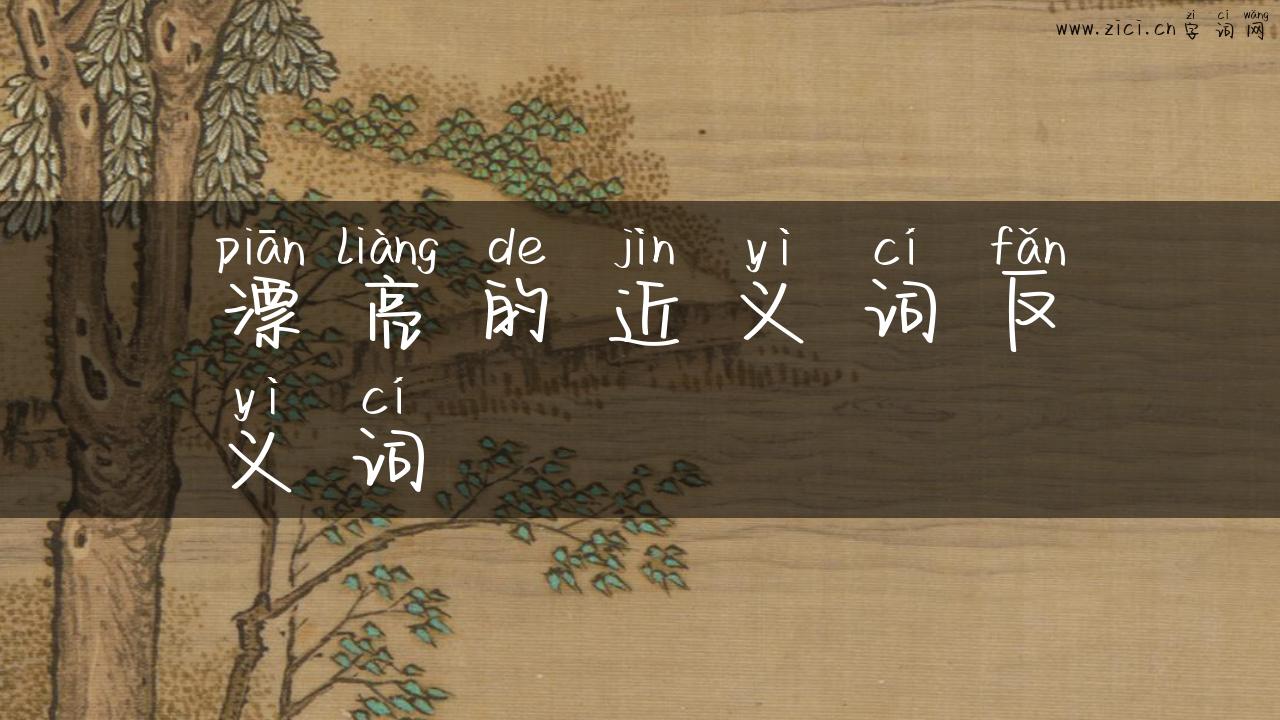 zì cí wǎng
www.zici.cn 字词网
piān liàng de jìn yì cí fǎn
漂亮的近义词反
yì cí
义词